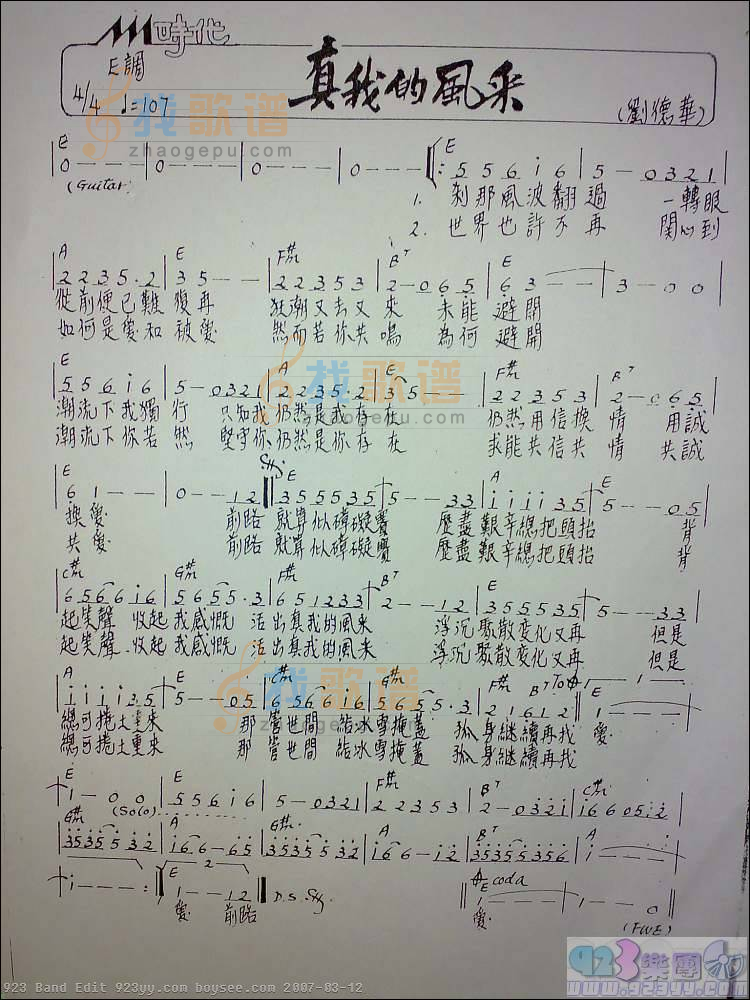 時代
E調
真我的風采
4/4 ♩=107
(劉德華)
E E
0 - - - | 0 - - - | 0 - - - | 0 - - - |: 5 5 6 i 6 | 5 - 0 3 2 1 |
(Guitar)
1. 刹那風波翻過 一轉眼
2. 世界也許不再 関心到
A E F#m B7 E
2 2 3 5 . 2 | 3 5 - - | 2 2 3 5 3 | 2 - 0 6 5 | 6 3 - - | 3 - 0 0 |
從前便已難復再 狂潮又去又來 未能避開
如何是愛和被愛 然而若你共鳴 為何避開
E A E F#m B7
5 5 6 i 6 | 5 - 0 3 2 1 | 2 2 3 5 . 2 | 3 5 - - | 2 2 3 5 3 | 2 - 0 6 5
潮流下我獨行 只知我仍然是我存在 仍然用信換情 用誠
潮流下你若然 堅守你仍然是你存在 求能共信共情 共誠
E A E
6 1 - - | 0 - - 1 2 | 3 5 5 5 3 5 | 5 - - 3 3 | i i i i 3 5 | 5 - - 0 5
換愛 前路就算似障礙賽 歷盡艱辛總把頭抬 背
共愛 前路就算似障礙賽 歷盡艱辛總把頭抬 背
C#m G#m F#m B7 E
6 5 6 6 i 6 | 5 6 5 5 . 3 | 6 5 1 2 3 3 | 2 - - 1 2 | 3 5 5 5 3 5 | 5 - - 3 3
起笑聲 收起我感慨 活出真我的風采 浮沉聚散变化又再 但是
起笑聲 收起我感慨 活出真我的風采 浮沉聚散变化又再 但是
A E C#m G#m F#m B7 To E
i i i i 3 5 | 5 - - 0 5 | 6 5 6 6 i 6 | 5 6 5 5 . 3 | 2 1 6 1 2 | 1 - - -
總可捲土重來 那管世間 結冰雪掩蓋 孤身継續再找 愛
總可捲土重來 那管世間 結冰雪掩蓋 孤身継續再找
E E F#m B7 C#m
1 - 0 0 | 5 5 6 i 6 | 5 - 0 3 2 1 | 2 2 3 5 3 | 2 - 0 3 2 i | i 6 6 0 5 i 2
(Solo)
G#m A G#m A B7 A
3 5 3 5 5 3 2 | i 6 - 6 5 | 3 5 3 5 5 3 2 | i 6 6 - i 2 | 3 5 3 5 5 3 5 6 | i - - -
E 2 E coda
i - - - :| 1 - - 1 2 | D.S. 1 - - - | 1 - - 0 ||
愛 前路 愛
找歌谱
zhaogepu.com
923 Band Edit 923yy.com boysee.com 2007-03-12
923樂團
www.923yy.com